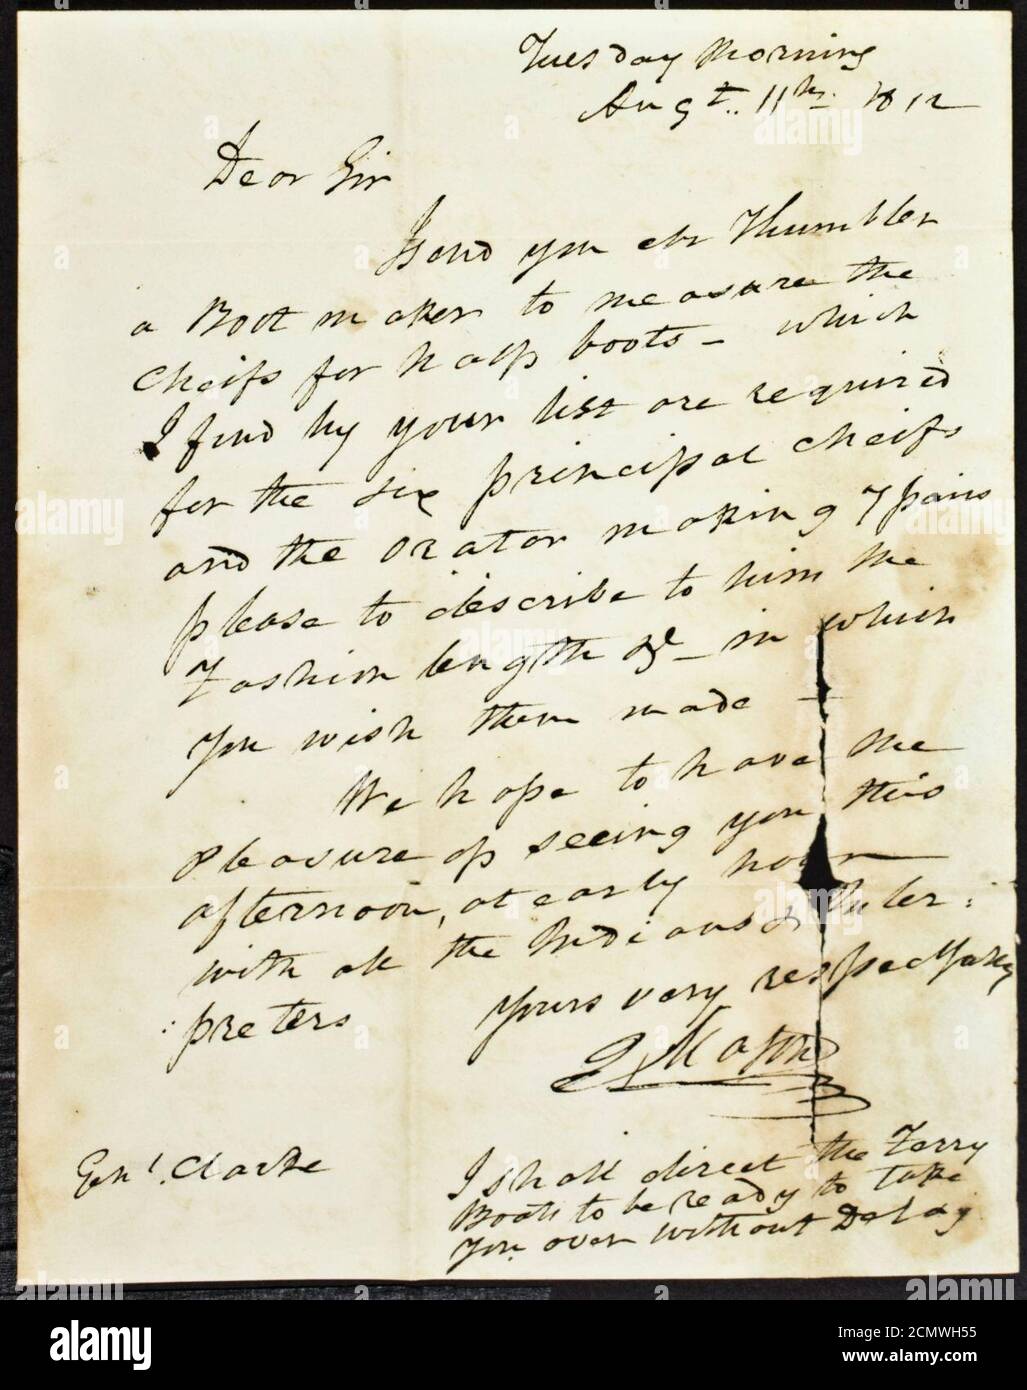 Tuesday Morning
Augt. 11th. 1812
Dear Sir
I send you Mr Humbler
a Boot maker to measure the
Cheifs for half boots – which
I find by your list are required
for the six principal cheifs
and the orator making 7 pairs
please to describe to him the
Fashion length &c – in which
you wish them made –
We hope to have the
pleasure of seeing you this
afternoon, at early hour
with all the Indians & Inter:
:preters
Yours very respectfully
Genl. Clarke
I shall direct the Ferry
Boats to be ready to take
You over without Delay
alamy
Image ID: 2CMWH55
www.alamy.com